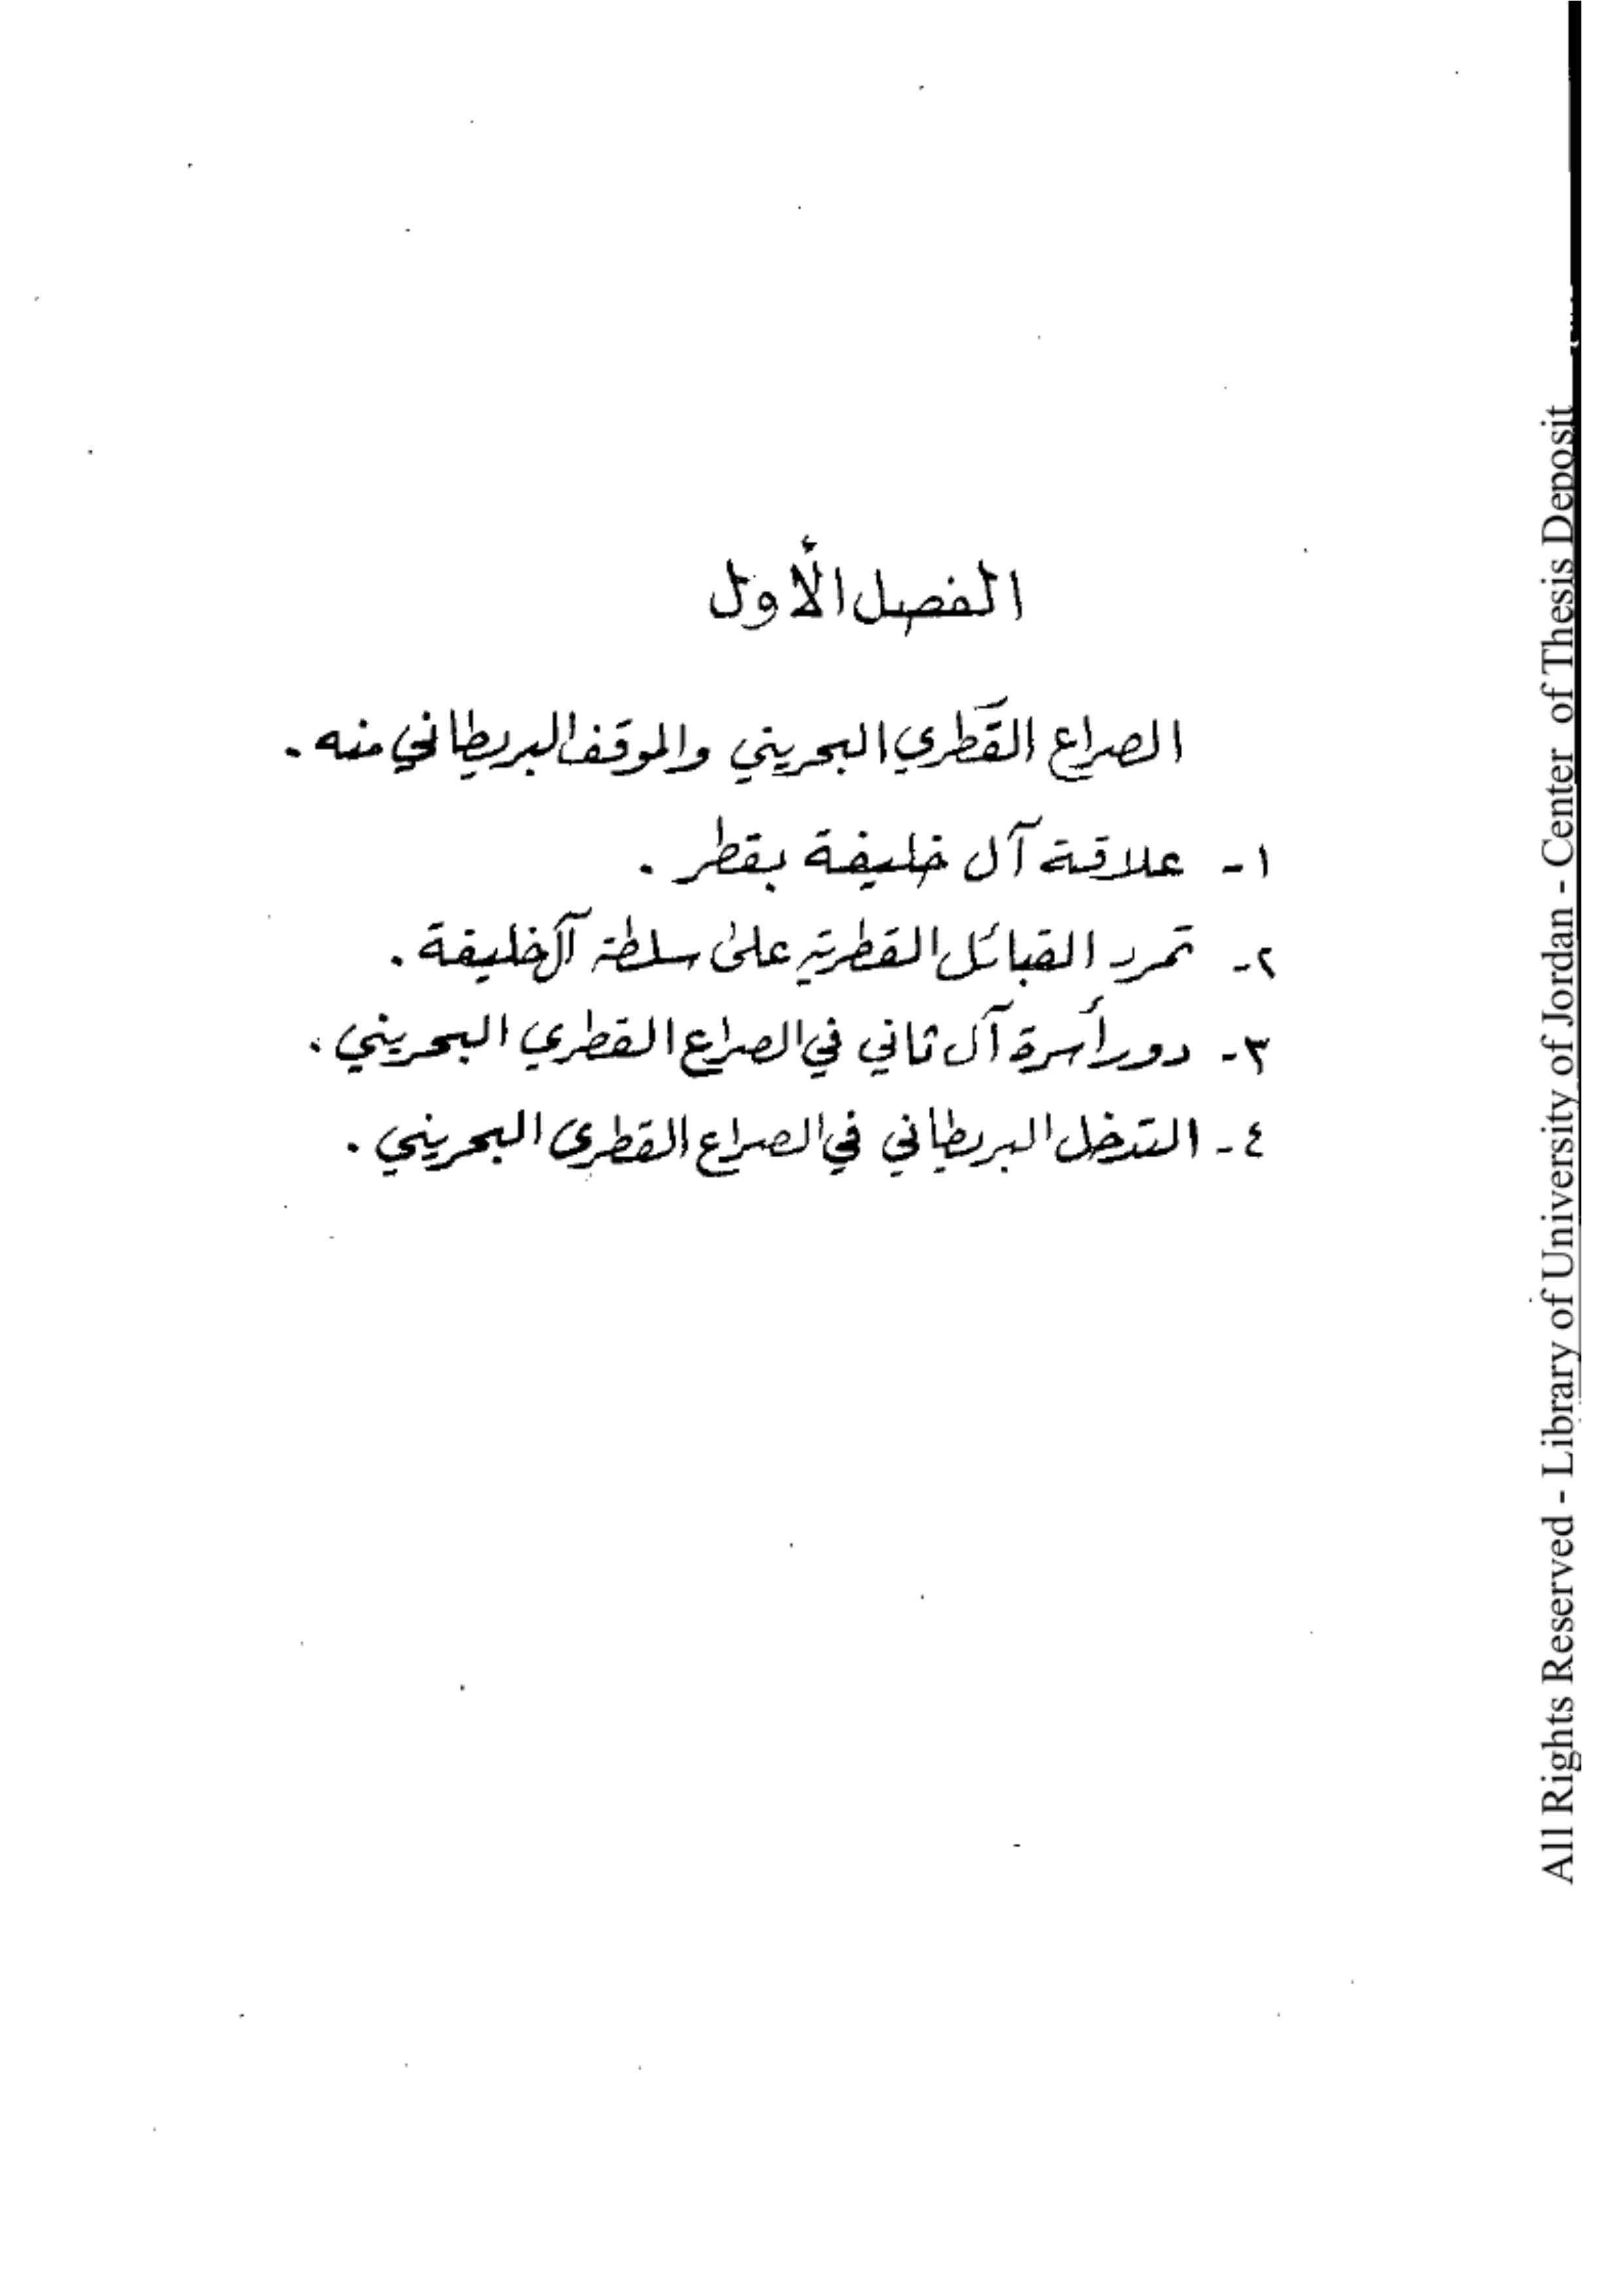 الفصل الأول
الصراع القَطري البحريني والموقف البريطاني منه .
١- علاقة آل خليفة بقطر .
٢- تمرد القبائل القطرية على سلطة آل خليفة .
٣- دور أسرة آل ثاني في الصراع القطري البحريني .
٤- التدخل البريطاني في الصراع القطري البحريني .
All Rights Reserved - Library of University of Jordan - Center of Thesis Deposit